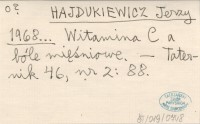 o?
HAJDUKIEWICZ Jerzy
1968... Witamina C a
bóle mięśniowe. — Tater-
nik 46, nr 2: 88.